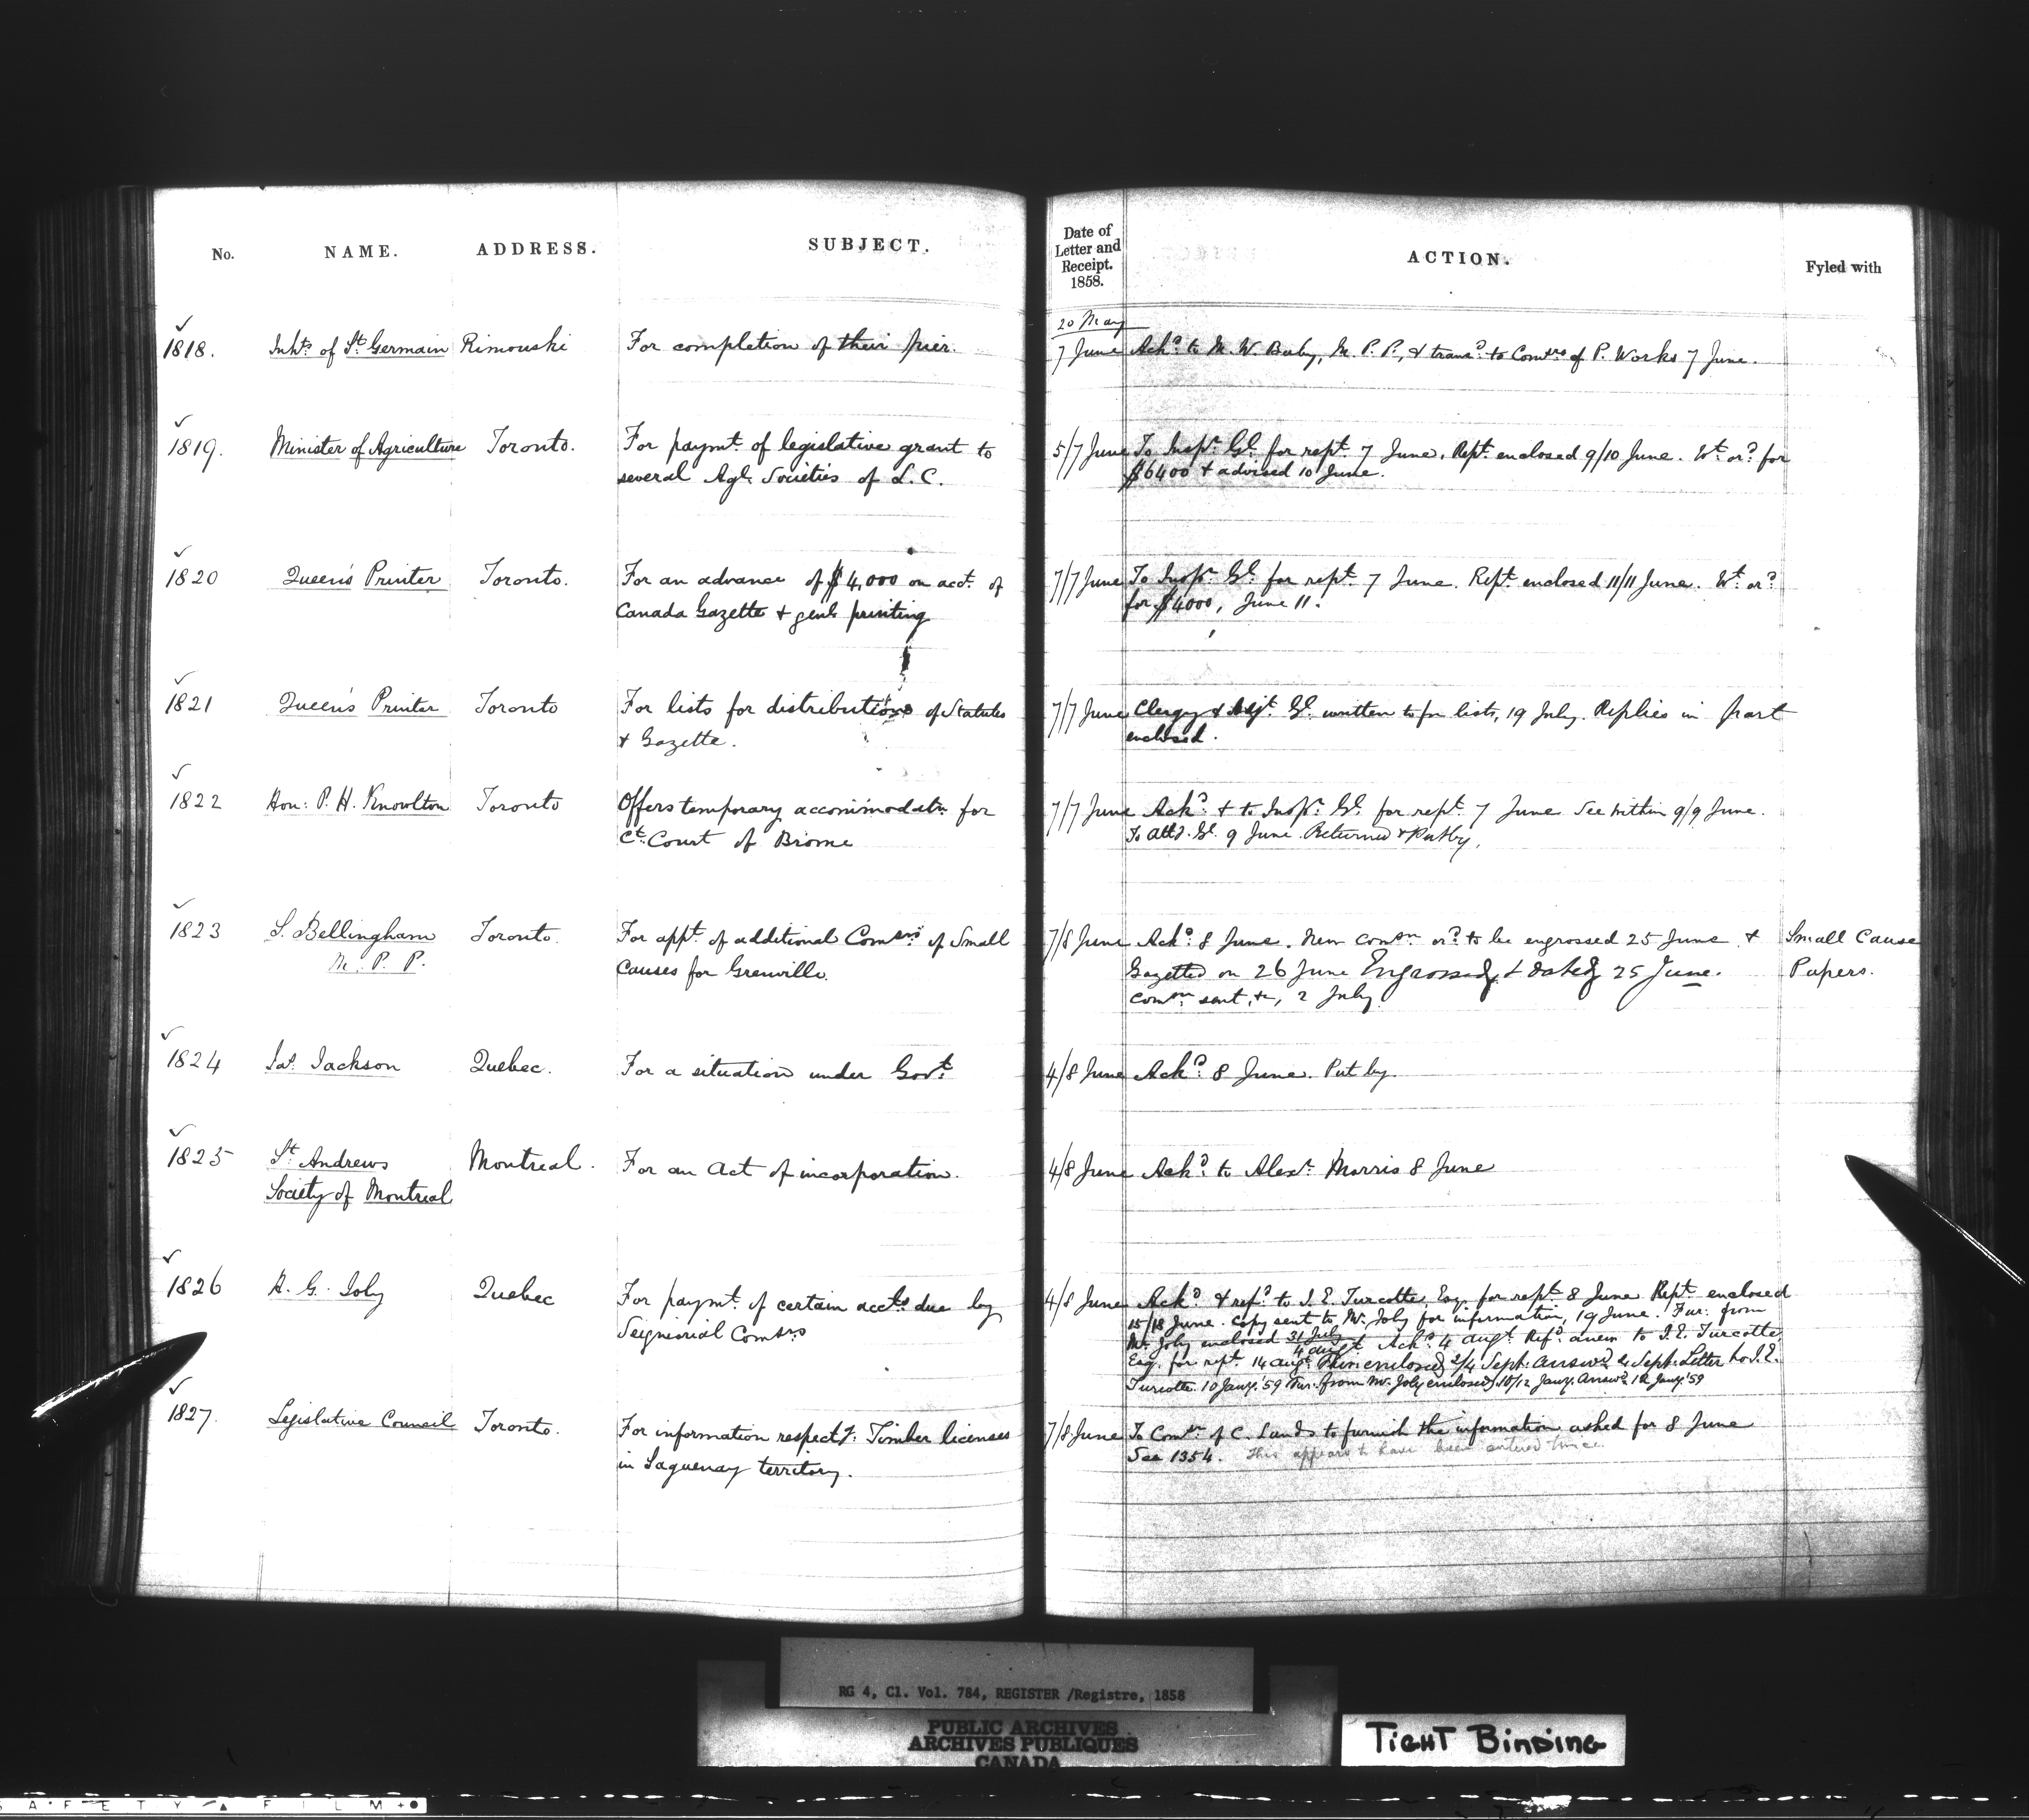 No. NAME. ADDRESS. SUBJECT. Date of Letter and Receipt. 1858. ACTION. Fyled with
20 May
1818. Inhts of St Germain Rimouski For completion of their pier. 7 June Ackd to M. W. Baby, M. P. P. & transd to Comrs of P. Works 7 June.
1819. Minister of Agriculture Toronto. For paymt of legislative grant to 5/7 June To Inspr Gl for rept 7 June. Rept enclosed 9/10 June. Wt ord for
several Agl Societies of L. C. $6400 & advised 10 June.
1820 Queen's Printer Toronto. For an advance of $4,000 on acct of 7/7 June To Inspr Gl for rept 7 June. Rept enclosed 11/11 June. Wt ord
Canada Gazette & genl printing for $4000, June 11.
1821 Queen's Printer Toronto For lists for distributions of Statutes 7/7 June Clergy & Adjt Gl written to for lists, 19 July. Replies in part
& Gazette. enclosed.
1822 Hon: P. H. Knowlton Toronto Offers temporary accommodatn for 7/7 June Ackd & to Inspr Gl for rept 7 June See within 9/9 June.
Ct Court of Brome To Atty Gl 9 June. Returned & Put by.
1823 S. Bellingham Toronto. For appt of additional Comsrs of Small 7/8 June Ackd 8 June. New comsn ord to be engrossed 25 June & Small Cause
M. P. P. Causes for Grenville. Gazetted on 26 June Engrossed & dated 25 June. Papers.
Comsn sent, &c, 2 July
1824 Jas Jackson Quebec. For a situation under Govt 4/8 June Ackd 8 June. Put by.
1825 St Andrews Montreal. For an Act of incorporation. 4/8 June Ackd to Alexr Morris 8 June
Society of Montreal
1826 H. G. Joly Quebec For paymt of certain accts due by 4/8 June Ackd & refd to J. E. Turcotte, Esq for rept 8 June Rept enclosed
Seigniorial Comsrs 15/18 June. Copy sent to Mr Joly for information, 19 June. Fur: from
Mr Joly enclosed 31 July/4 augt Ackd 4 augt. Refd anew to J. E. Turcotte,
Esq. for rept 14 augt. enclosed 2/4 Sept: Answd 4 Sept: Letter to J. E.
Turcotte 10 Jany '59 Fur: from Mr Joly enclosed 10/12 Jany. Answd 12 Jany '59
1827. Legislative Council Toronto. For information respectg. Timber licenses 7/8 June To Comsr of C. Lands to furnish the information asked for 8 June
in Saguenay territory. See 1354. This appears to have been entered twice
RG 4, C1. Vol. 784, REGISTER /Registre, 1858
PUBLIC ARCHIVES
ARCHIVES PUBLIQUES
CANADA
TIGHT BINDING
SAFETY FILM